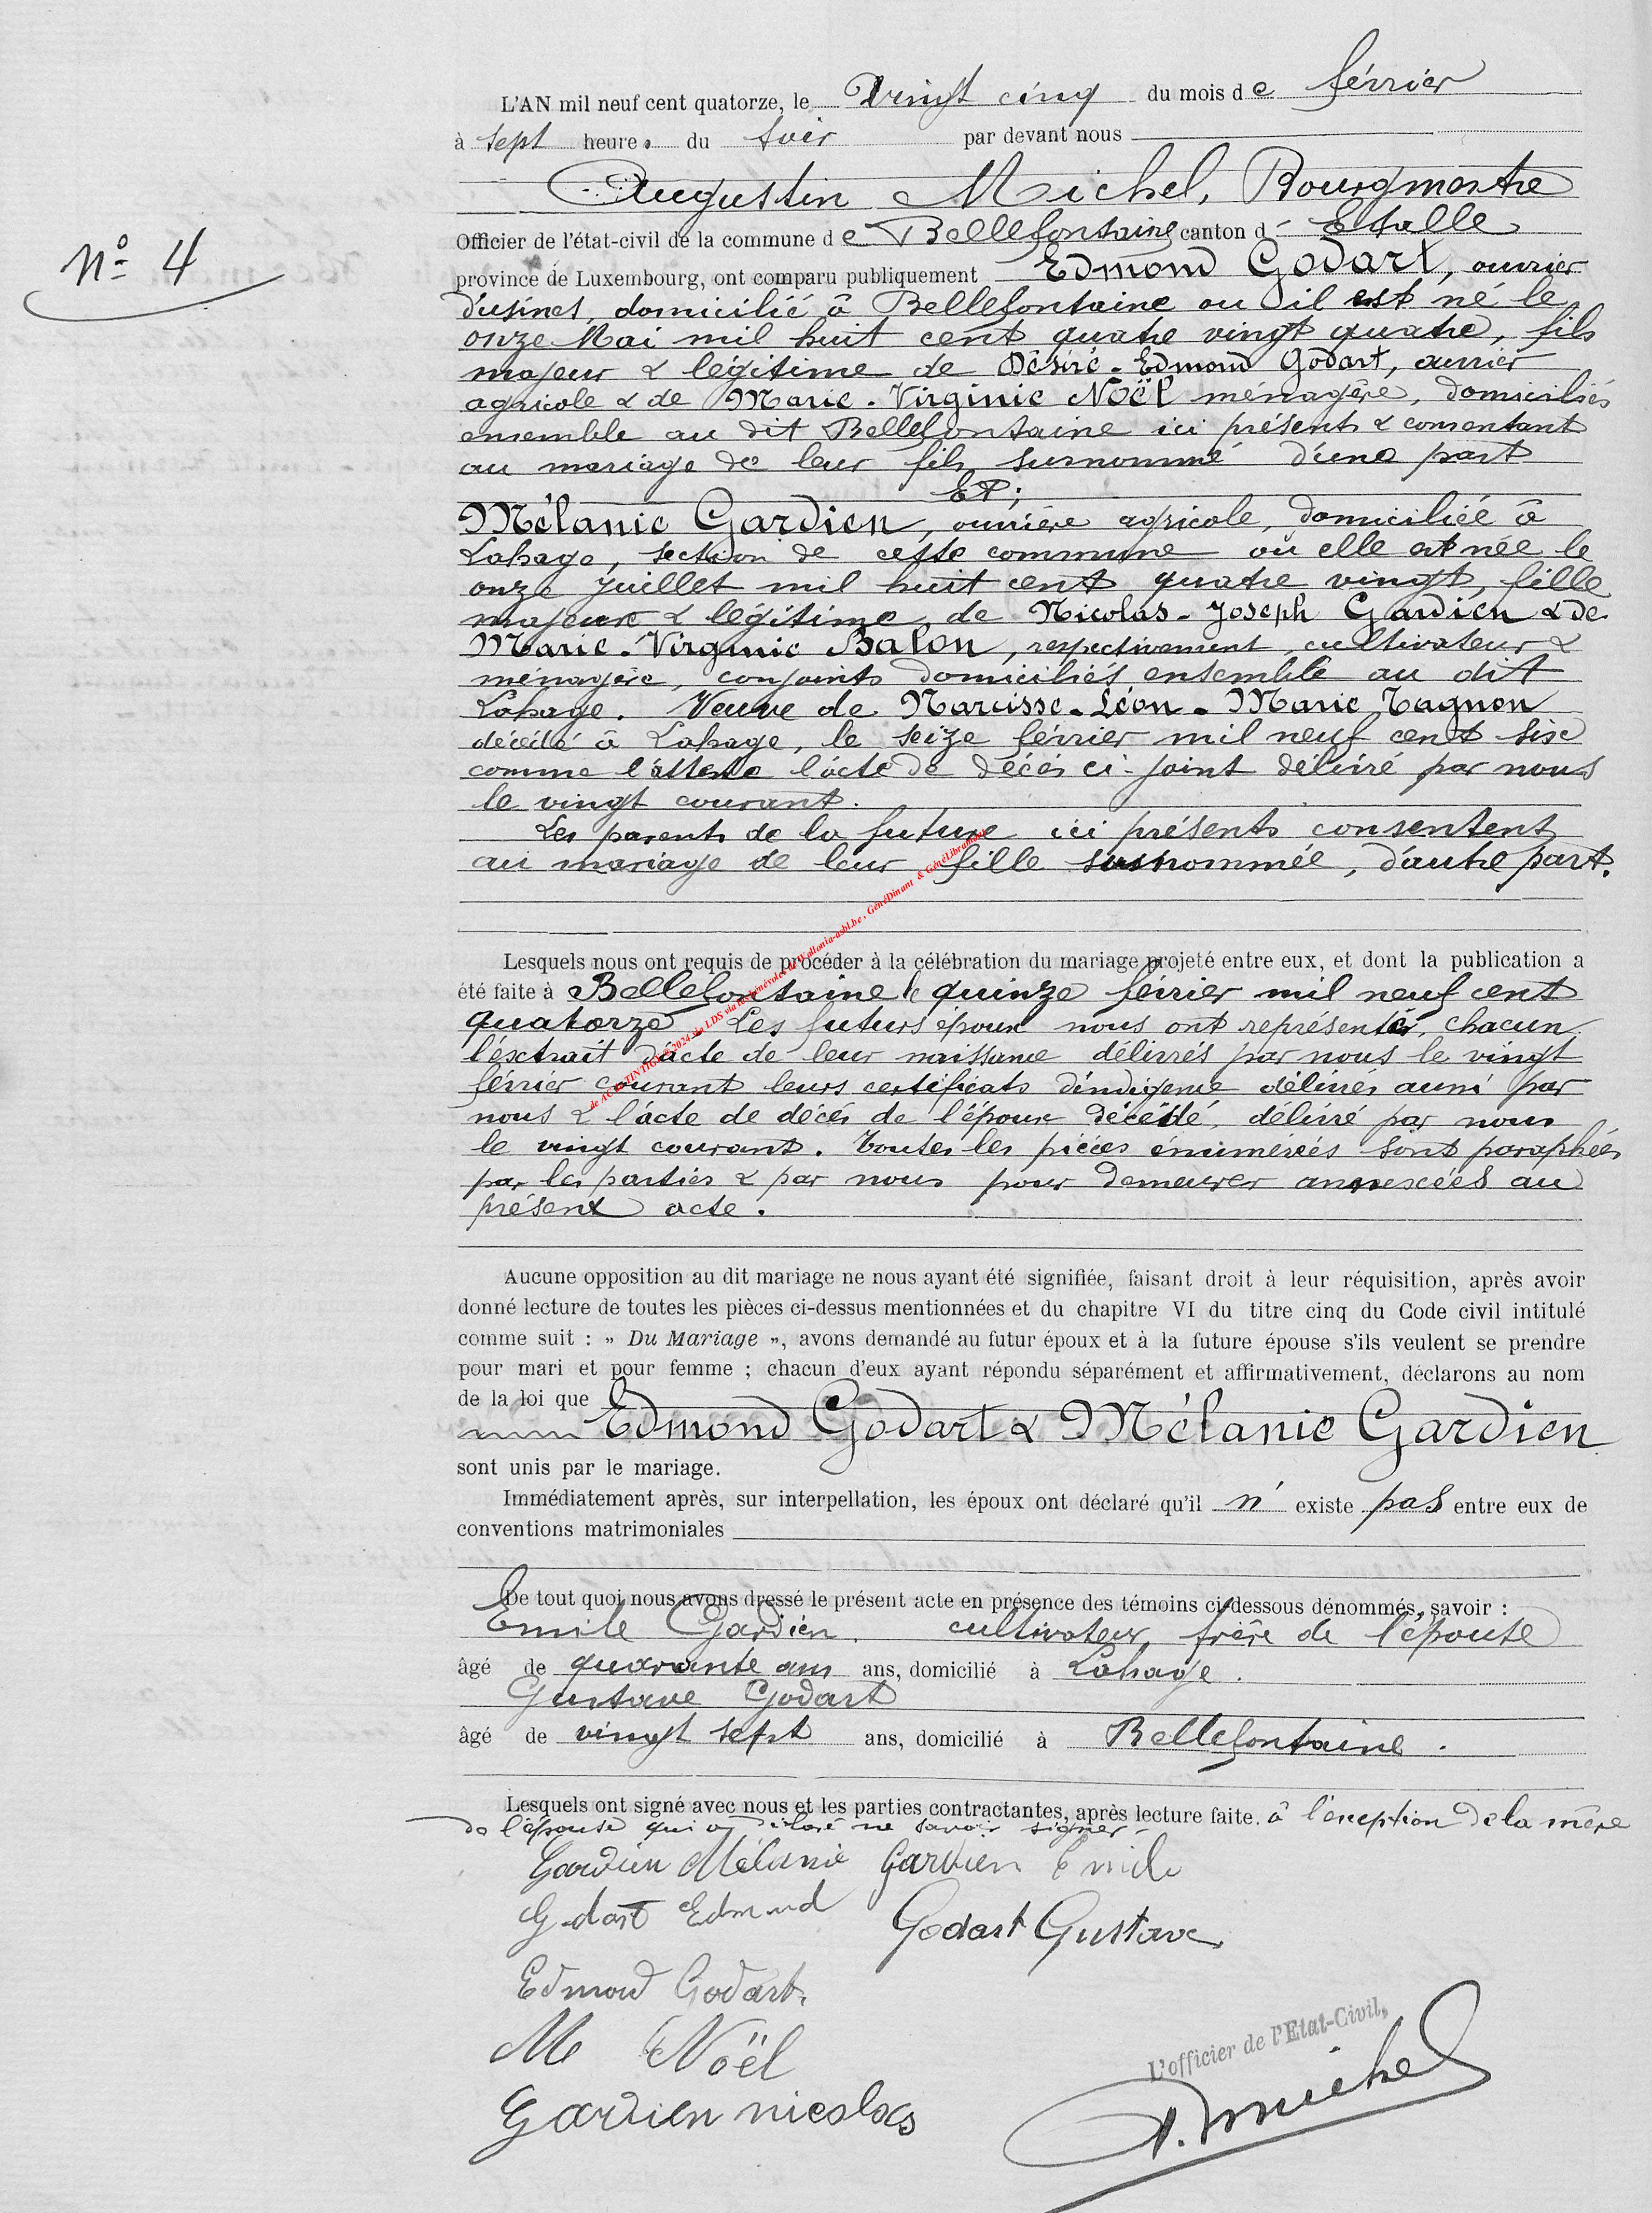 L'AN mil neuf cent quatorze, le Vingt cinq du mois de février
à sept heures du soir par devant nous
Augustin Michel, Bourgmestre
Officier de l'état-civil de la commune de Bellefontaine canton d' Etalle
N° 4
province de Luxembourg, ont comparu publiquement Edmond Godart, ouvrier
d'usines, domicilié à Bellefontaine ou il est né le
onze Mai mil huit cent quatre vingt quatre, fils
majeur & légitime de Désiré-Edmond Godart, ouvrier
agricole & de Marie-Virginie Noël ménagère, domiciliés
ensemble au dit Bellefontaine ici présents & consentant
au mariage de leur fils susnommé d'une part
Et;
Mélanie Gardien, ouvrière agricole, domiciliée à
Lahage, section de cette commune où elle est née le
onze juillet mil huit cent quatre vingt, fille
majeure & légitime de Nicolas-Joseph Gardien & de
Marie-Virginie Balon, respectivement cultivateur &
ménagère, conjoints domiciliés ensemble au dit
Lahage. Veuve de Narcisse-Léon-Marie Tagnon
décédé à Lahage, le seize février mil neuf cent six
comme l'atteste l'acte de décès ci-joint délivré par nous
le vingt courant.
Les parents de la future ici présents consentent
au mariage de leur fille susnommée, d'autre part.
Lesquels nous ont requis de procéder à la célébration du mariage projeté entre eux, et dont la publication a
été faite à Bellefontaine le quinze février mil neuf cent
quatorze. Les futurs époux nous ont représentés, chacun
l'extrait d'acte de leur naissance délivrés par nous le vingt
février courant leurs certificats d'indigence délivrés aussi par
nous & l'acte de décès de l'époux décédé, délivré par nous
le vingt courant. Toutes les pièces énumérées sont paraphées
par les parties & par nous pour demeurer annexées au
présent acte.
Aucune opposition au dit mariage ne nous ayant été signifiée, faisant droit à leur réquisition, après avoir
donné lecture de toutes les pièces ci-dessus mentionnées et du chapitre VI du titre cinq du Code civil intitulé
comme suit : » Du Mariage », avons demandé au futur époux et à la future épouse s'ils veulent se prendre
pour mari et pour femme ; chacun d'eux ayant répondu séparément et affirmativement, déclarons au nom
de la loi que
Edmond Godart & Mélanie Gardien
sont unis par le mariage.
Immédiatement après, sur interpellation, les époux ont déclaré qu'il n' existe pas entre eux de
conventions matrimoniales
De tout quoi nous avons dressé le présent acte en présence des témoins ci-dessous dénommés, savoir :
Emile Gardien. cultivateur, frère de l'épouse
âgé de quarante ans ans, domicilié à Lahage.
Gustave Godart
âgé de vingt sept ans, domicilié à Bellefontaine.
Lesquels ont signé avec nous et les parties contractantes, après lecture faite. à l'exception de la mère
de l'épouse qui a déclaré ne savoir signer
Gardien Mélanie Gardien Emile
Godart Edmond
Godart Gustave
Edmond Godart.
M Noël
Gardien nicolas
L'officier de l'Etat-Civil,
A. Michel